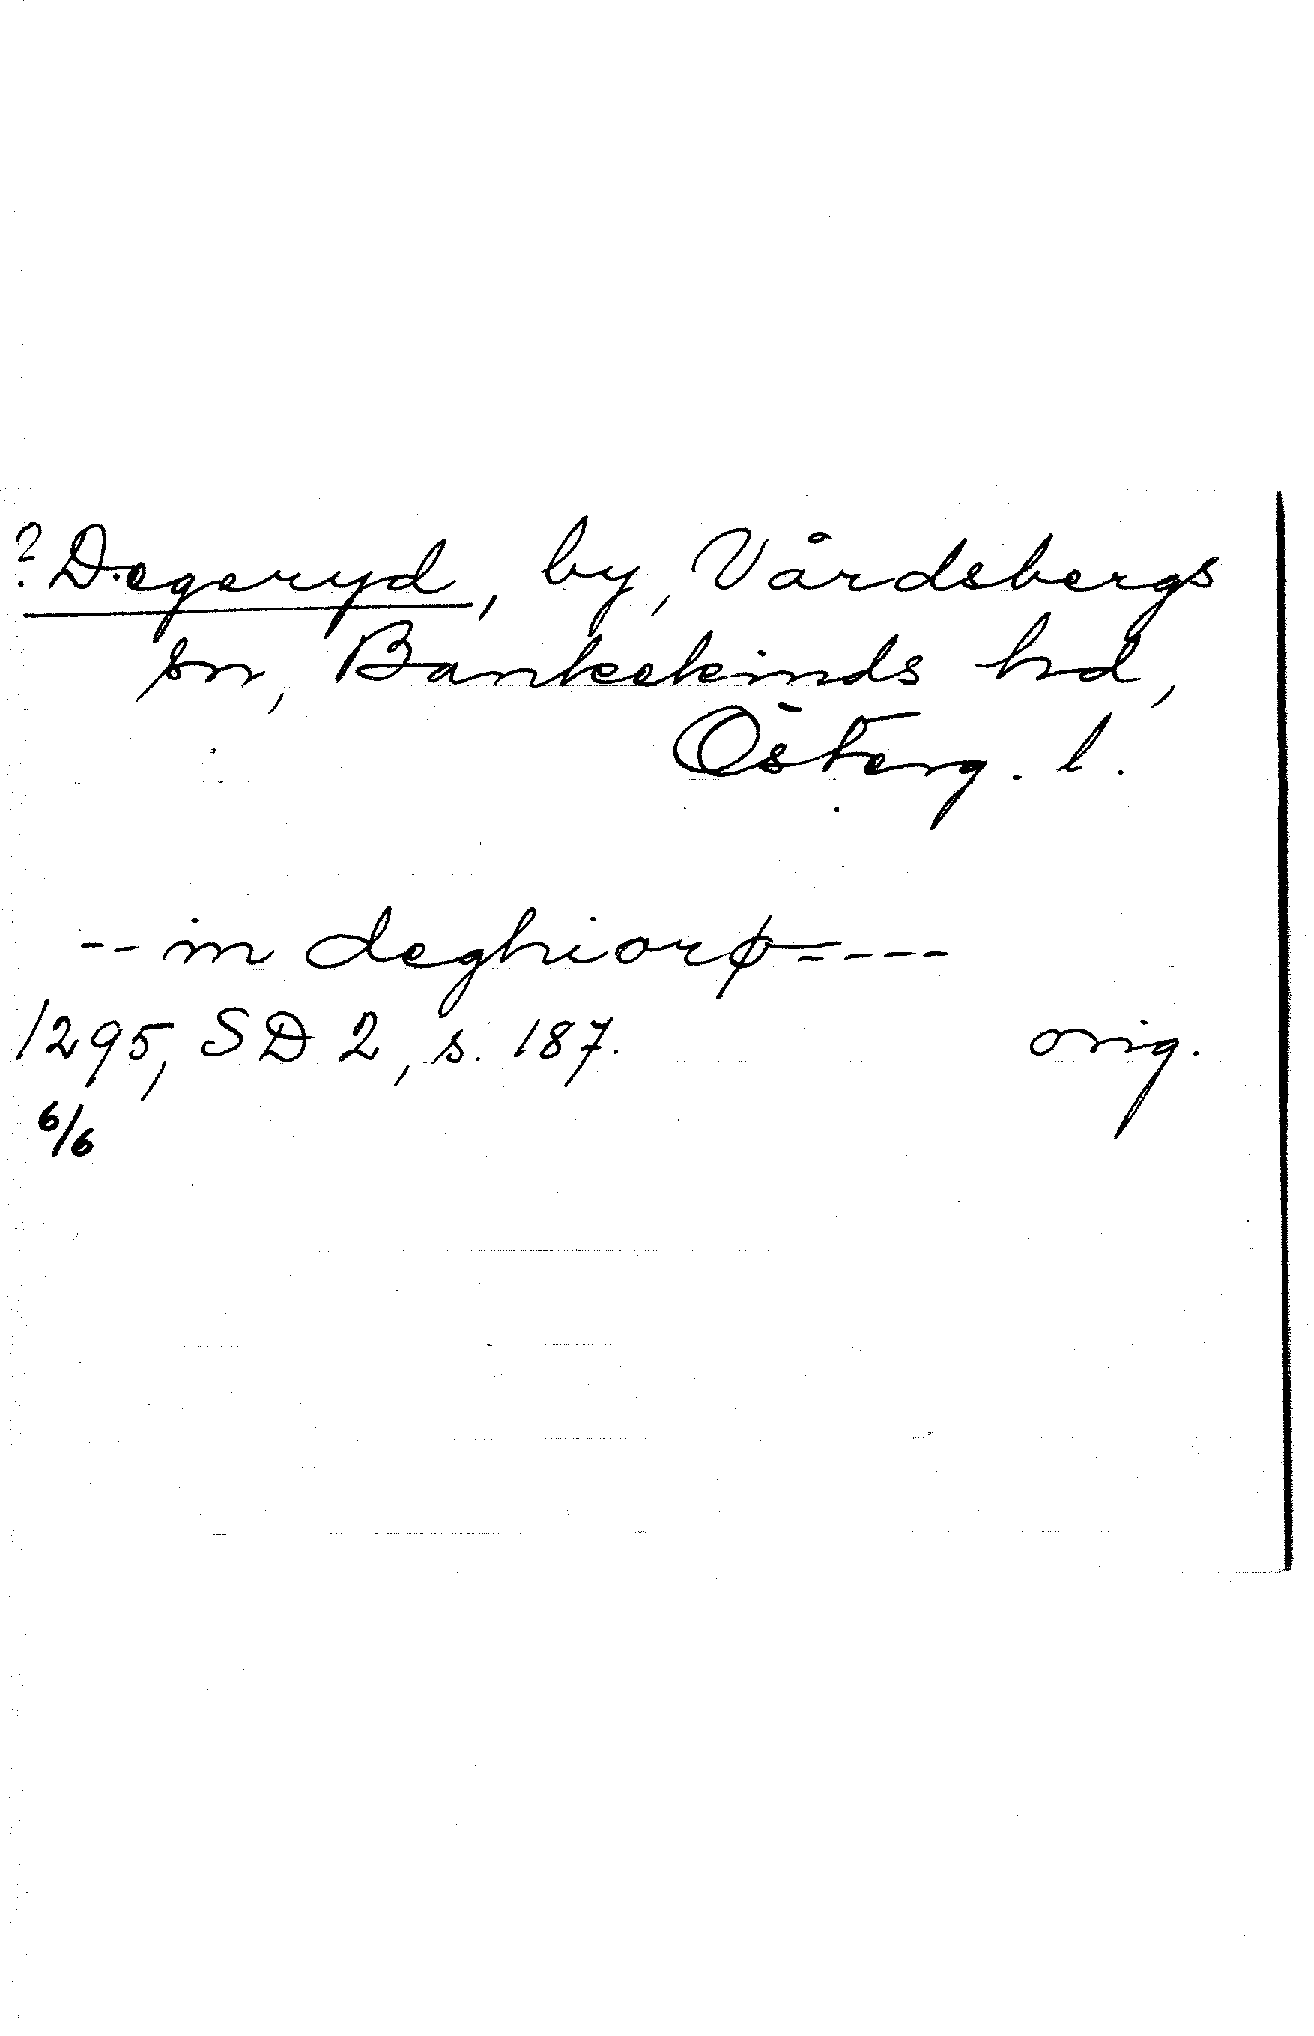 ? Degeryd, by, Vårdsbergs
sn, Bankekinds hd,
Österg. l.
-- in deghiorþ ----
1295, SD 2, s. 187. orig.
6/6